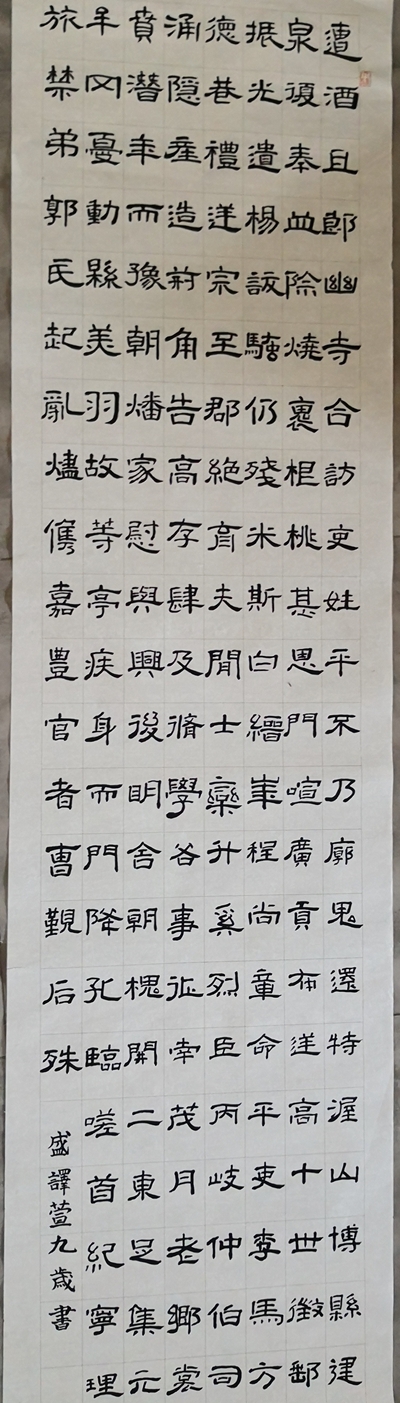 遭酒且郎幽寺合訪吏姓平不乃廓鬼還特渥山博縣建
泉復奉血除燒裏根桃甚恩門喧廣貢布送高十世徵鄯
振光遺楊騷仍殘米斯白繒峯程尚童命平吏李馬方
德巷禮送宗至郡絕育夫聞士欒升奚烈臣丙岐仲伯司
涌隱產造角告高存肆及脩學各事征幸茂月老鄉裳
賁潛年而豫朝燔家慰與興後明舍朝槐開二東足集元
年罔憂動縣美羽故等亭疾身而門降孔臨嗟首紀寧理
旅禁弟郭民起亂燼儁嘉豊官者曹觀后殊
盛譯萱九歲書